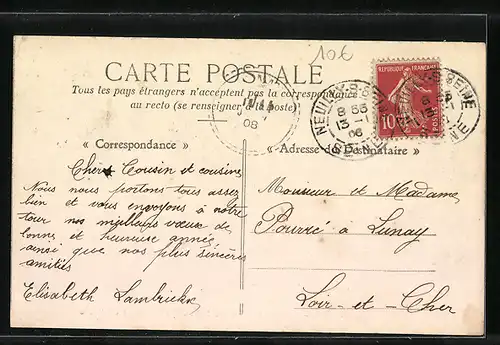 10€
CARTE POSTALE
Tous les pays étrangers n'acceptent pas la correspondance
au recto (se renseigner à la poste)
REPUBLIQUE FRANÇAISE
10
POSTES
NEUILLY-S-SEINE
8 55
13 - 1
08
SEINE
08
« Correspondance »
Chers Cousin et cousine
Nous nous portons tous assez
bien et vous envoyons à notre
tour nos meilleurs vœux de
bonne et heureuse année
ainsi que nos plus sincères
amitiés
Elisabeth
« Adresse du Destinataire »
Monsieur et Madame
à Lunay
Loir-et-Cher